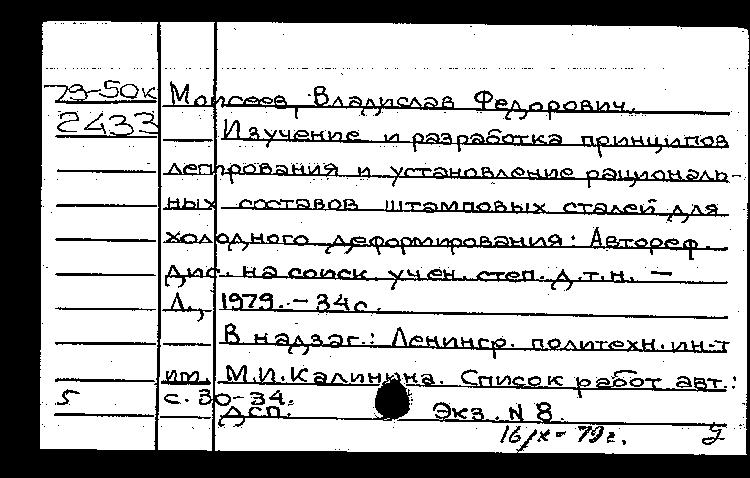 79-50к Моисеев, Владислав Федорович.
2433 Изучение и разработка принципов
легирования и установление рациональ-
ных составов штамповых сталей для
холодного деформирования: Автореф.
дис. на соиск. учен. степ. д.т.н. –
Л., 1979. – 34с.
В надзаг.: Ленингр. политехн. ин-т
им. М.И.Калинина. Список работ авт.:
5 с. 30-34.
Дсп. Экз. N 8.
16/X-79г.